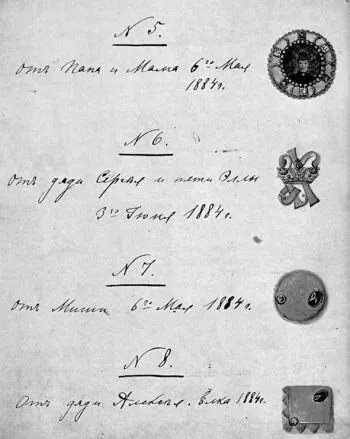 N 5.
отъ Папа и Мама 6го Мая
1884г.
N 6.
отъ дяди Сергѣя и тети Эллы
3го Июня 1884г.
N 7.
отъ Миши 6го Мая 1884г.
N 8.
Отъ дяди Алексѣя. Ёлка 1884г.